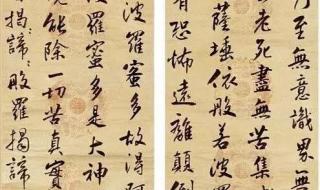 乃至無意識界無
老死盡無苦集
薩埵依般若波羅
有恐怖遠離顛倒
波羅蜜多故得阿
波羅蜜多是大神
能除一切苦真實
揭諦般羅揭諦